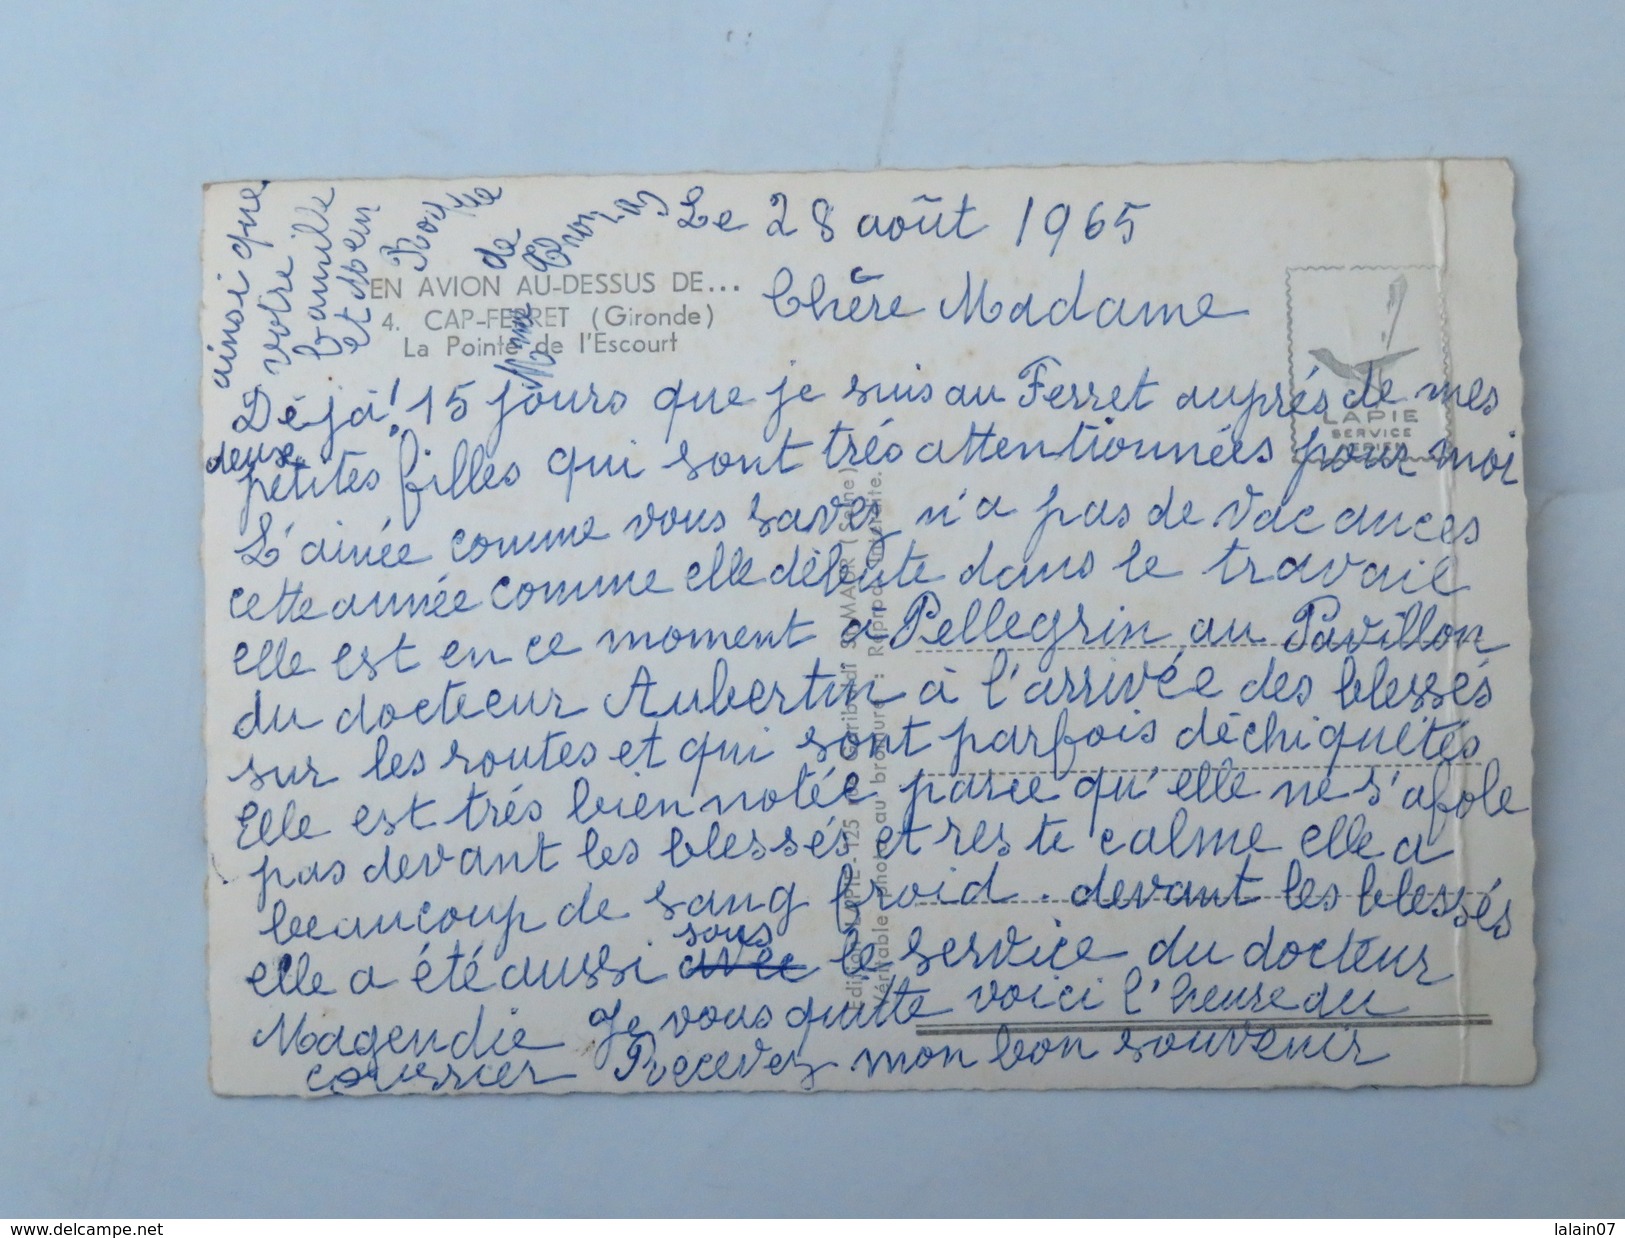 Le 28 août 1965
Chère Madame
EN AVION AU-DESSUS DE...
4. CAP-FERRET (Gironde)
La Pointe de l'Escourt
LAPIE
SERVICE
AERIEN
Déjà! 15 jours que je suis au Ferret auprés de mes
deux
petites filles qui sont trés attentionnées pour moi
L'ainée comme vous savez n'a pas de vacances
cette année comme elle débute dans le travail
elle est en ce moment a Pellegrin au Pavillon
du docteur Aubertin à l'arrivée des blessés
sur les routes et qui sont parfois déchiquétés
Elle est trés bien notée parce qu'elle ne s'afole
pas devant les blessés et reste calme elle a
beaucoup de sang froid. devant les blessés
elle a été aussi avec sous le service du docteur
Magendie Je vous quitte voici l'heure du
courrier Recevez mon bon souvenir
ainsi que
votre
famille
et
Mme
de
Editions LAPIE - 125 rue Garibaldi St-MAUR (Seine)
Véritable photo au bromure : Reprod. Interdite.
delcampe.net
lalain07